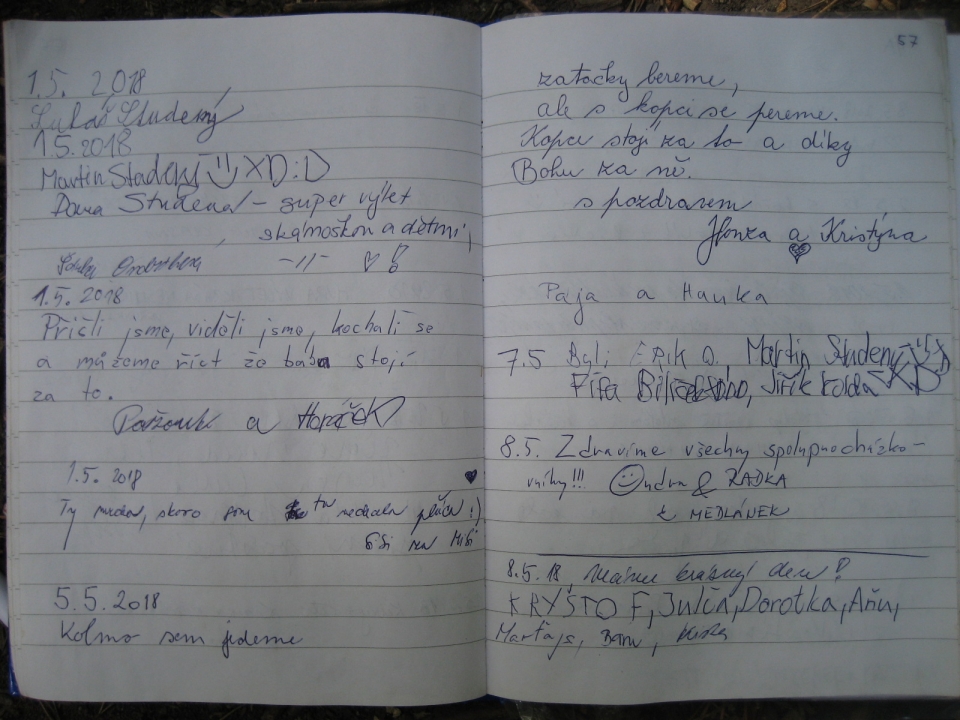 1.5. 2018
Lukáš Studený
1.5.2018
Martin Studený XD :D
Dana Studená - super výlet
s kámoškou a dětmi,
-//-
1.5. 2018
Přišli jsme, viděli jsme, kochali se
a můžeme říct že bába stojí
za to.
a Horáček
1.5. 2018
Ty vado, skoro sem tu nechala plíce :)
5.5.2018
Kolmo sem jedeme
57
zatáčky bereme,
ale s kopci se pereme.
Kopce stojí za to a díky
Bohu za ně.
s pozdravem
Honza a Kristýna
Pája a Hanka
7.5 Byli: Erik O. Martin Studený XD
Fífa, Jiřík Kolda XD
8.5. Zdravíme všechny spolupocházko-
vníky!!! Ondra & RADKA
z MEDLÁNEK
8.5.18, Máme krásný den!
KRYŠTOF, Julča, Dorotka, Aňu,